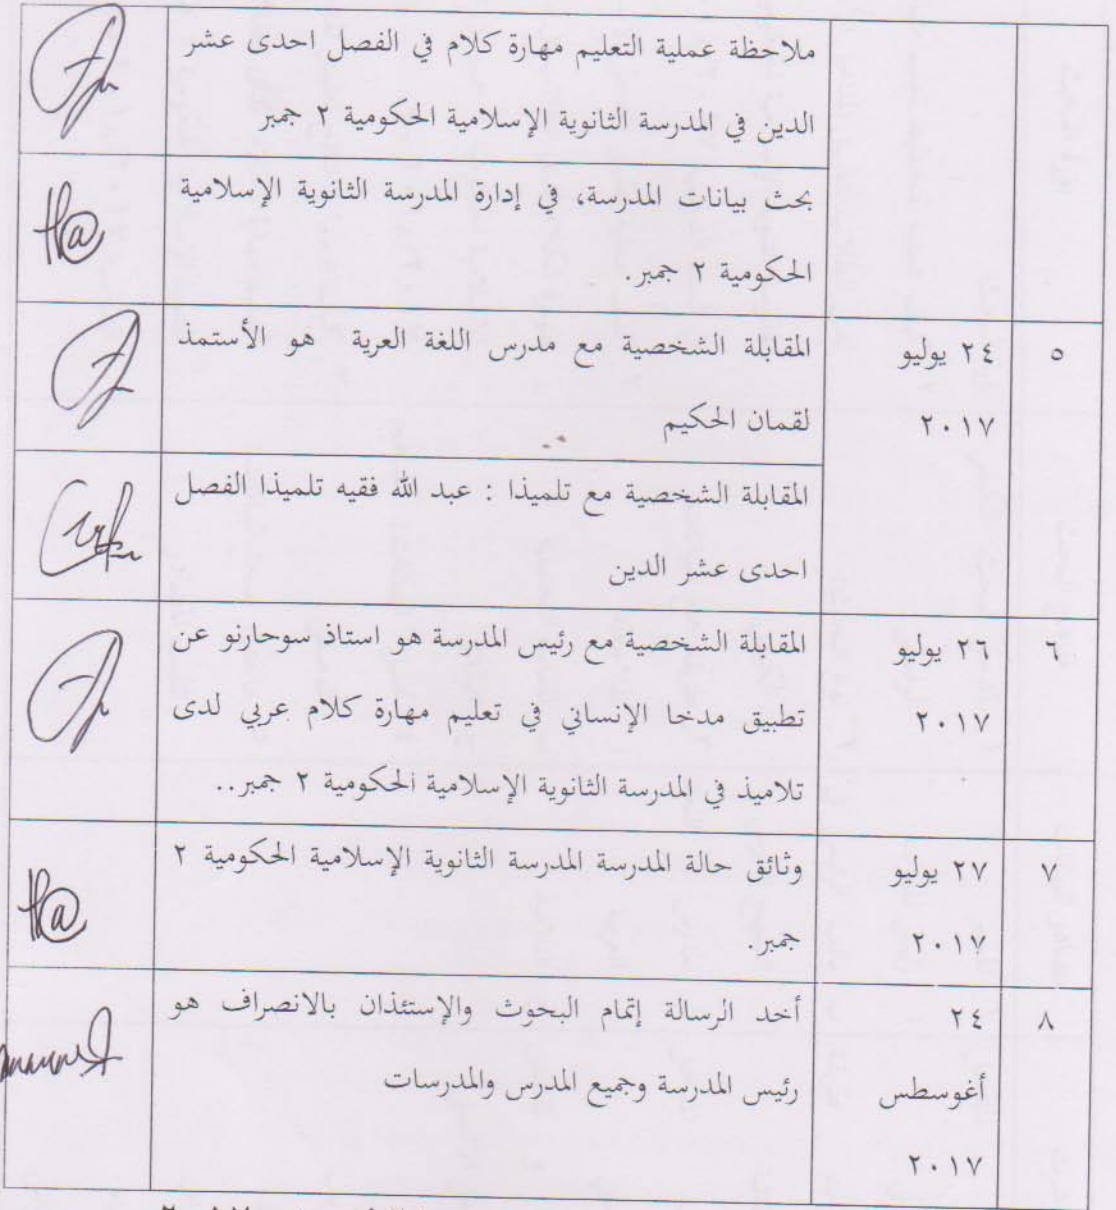 ملاحظة عملية التعليم مهارة كلام في الفصل احدى عشر
الدين في المدرسة الثانوية الإسلامية الحكومية ٢ جمبر
بحث بيانات المدرسة، في إدارة المدرسة الثانوية الإسلامية
الحكومية ٢ جمبر.
٥ ٢٤ يوليو المقابلة الشخصية مع مدرس اللغة العرية هو الأستمذ
٢٠١٧ لقمان الحكيم
المقابلة الشخصية مع تلميذا : عبد الله فقيه تلميذا الفصل
احدى عشر الدين
٦ ٢٦ يوليو المقابلة الشخصية مع رئيس المدرسة هو استاذ سوحارنو عن
٢٠١٧ تطبيق مدخا الإنساني في تعليم مهارة كلام عربي لدى
تلاميذ في المدرسة الثانوية الإسلامية الحكومية ٢ جمبر..
٧ ٢٧ يوليو وثائق حالة المدرسة المدرسة الثانوية الإسلامية الحكومية ٢
٢٠١٧ جمبر.
٨ ٢٤ أخد الرسالة إتمام البحوث والإستئذان بالانصراف هو
أغوسطس رئيس المدرسة وجميع المدرس والمدرسات
٢٠١٧